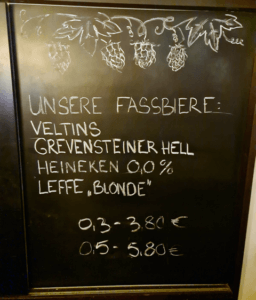 UNSERE FASSBIERE:
VELTINS
GREVENSTEINER HELL
HEINEKEN 0,0%
LEFFE „BLONDE"
0,3 - 3,80 €
0,5 - 5,80 €